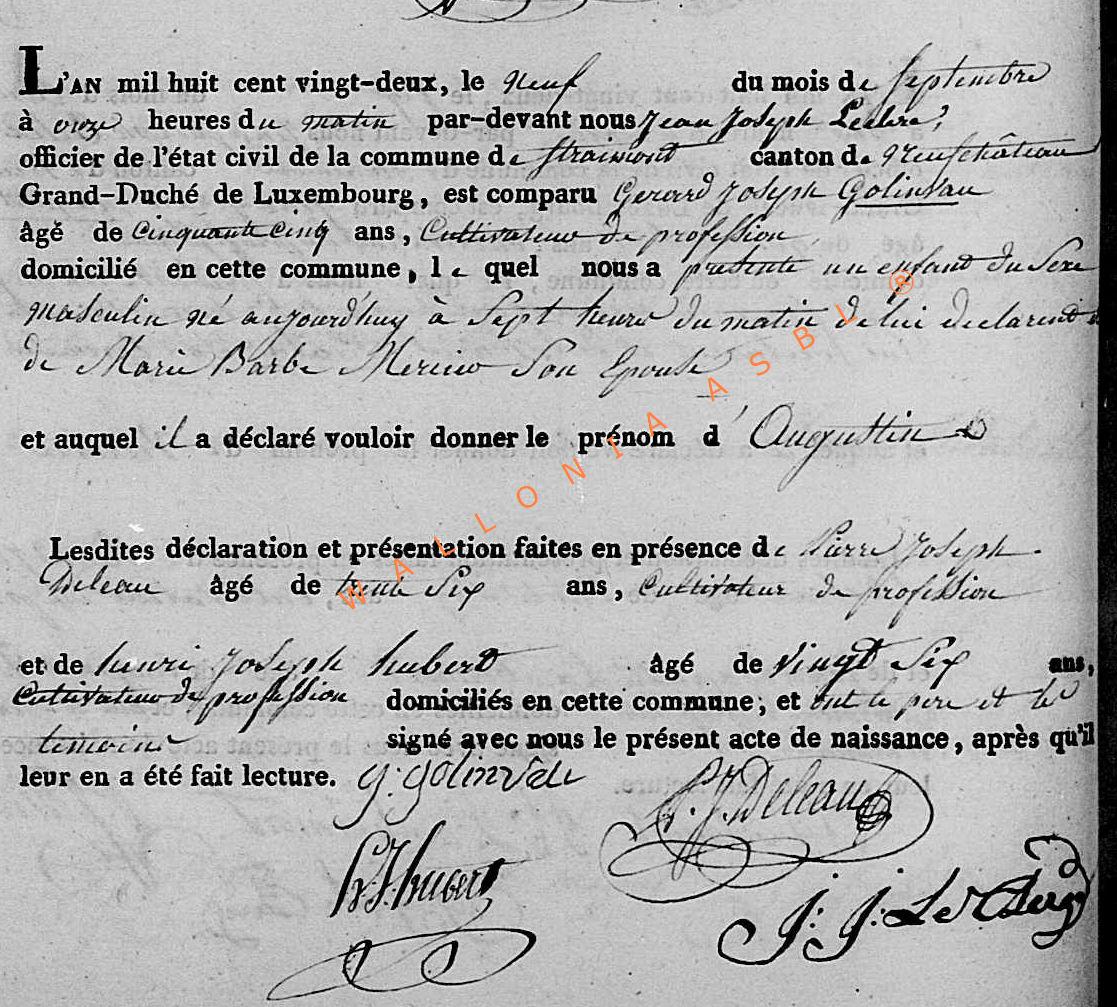 L'AN mil huit cent vingt-deux, le neuf du mois de Septembre
à onze heures du matin par-devant nous Jean Joseph
officier de l'état civil de la commune de Straimont canton de Neufchâteau
Grand-Duché de Luxembourg, est comparu Gerard Joseph Golinvau
âgé de Cinquante Cinq ans, Cultivateur de profession
domicilié en cette commune, le quel nous a présenté un enfant du Sexe
masculin né aujourd'huy à Sept heure du matin de lui declarent
de Marie Barbe Son Epouse
et auquel il a déclaré vouloir donner le prénom d'Augustin
Lesdites déclaration et présentation faites en présence de Pierre Joseph
Deleau âgé de trente Six ans, Cultivateur de profession
et de henri Joseph hubert âgé de vingt Six ans,
Cultivateur de profession domiciliés en cette commune; et ont le pere et le
temoins signé avec nous le présent acte de naissance, après qu'il
leur en a été fait lecture. g: golinvau
P. J. Deleau
h J hubert
J: J: Le Clerq
WALLONIA ASBL ®